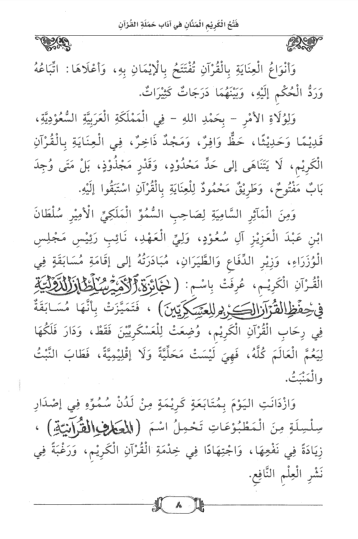 فَتْحُ الْكَرِيْمِ الْمَنَّانِ فِي آدَابِ حَمَلَةِ الْقُرْآنِ
وَأَنْوَاعُ الْعِنَايَةِ بِالْقُرْآنِ تُفْتَتَحُ بِالْإِيْمَانِ بِهِ، وَأَعْلَاهَا: اتِّبَاعُهُ
وَرَدُّ الْحُكْمِ إِلَيْهِ، وَبَيْنَهُمَا دَرَجَاتٌ كَثِيْرَاتٌ.
وَلِوُلَاةِ الْأَمْرِ - بِحَمْدِ اللهِ - فِي الْمَمْلَكَةِ الْعَرَبِيَّةِ السُّعُوْدِيَّةِ،
قَدِيْمًا وَحَدِيْثًا، حَظٌّ وَافِرٌ، وَمَجْدٌ ذَاخِرٌ، فِي الْعِنَايَةِ بِالْقُرْآنِ
الْكَرِيْمِ، لَا يَتَنَاهَى إلى حَدٍّ مَحْدُوْدٍ، وَقَدْرٍ مَجْذُوْذٍ، بَلْ مَتَى وُجِدَ
بَابٌ مَفْتُوْحٌ، وَطَرِيْقٌ مَحْمُودٌ لِلْعِنَايَةِ بِالْقُرْآنِ اسْتَبَقُوا إِلَيْهِ.
وَمِنَ الْمَآثِرِ السَّامِيَةِ لِصَاحِبِ السُّمُوِّ الْمَلَكِيِّ الْأَمِيْرِ سُلْطَانَ
ابْنِ عَبْدَ الْعَزِيْزِ آلِ سُعُوْدٍ، وَلِيِّ الْعَهْدِ، نَائِبِ رَئِيْسِ مَجْلِسِ
الْوُزَرَاءِ، وَزِيْرِ الدِّفَاعِ وَالطَّيَرَانِ، مُبَادَرَتُهُ إلى إِقَامَةِ مُسَابَقَةٍ فِي
الْقُرْآنِ الْكَرِيْمِ، عُرِفَتْ بِاسْمِ: (جَائِزة الأمير سُلطان الدّوليّة
في حِفظِ القُرآنِ الكريم للعسكريّين)، فَتَمَيَّزَتْ بِأَنَّهَا مُسَابَقَةٌ
فِي رِحَابِ الْقُرْآنِ الْكَرِيْمِ، وُضِعَتْ لِلْعَسْكَرِيِّيْنَ فَقَطْ، وَدَارَ فَلَكُهَا
لِيَعُمَّ الْعَالَمَ كُلَّهُ، فَهِيَ لَيْسَتْ مَحَلِّيَّةً وَلَا إِقْلِيْمِيَّةً، فَطَابَ النَّبْتُ
والْمَنْبَتُ.
وَازْدَانَتِ الْيَوْمَ بِمُتَابَعَةٍ كَرِيْمَةٍ مِنْ لَدُنْ سُمُوِّهِ فِي إِصْدَارِ
سِلْسِلَةٍ مِنَ الْمَطْبُوْعَاتِ تَحْمِلُ اسْمَ (المعارف القرآنيّة)،
زِيَادَةً فِي نَفْعِهَا، وَاجْتِهَادًا فِي خِدْمَةِ الْقُرْآنِ الْكَرِيْمِ، وَرَغْبَةً فِي
نَشْرِ الْعِلْمِ النَّافِعِ.
٨